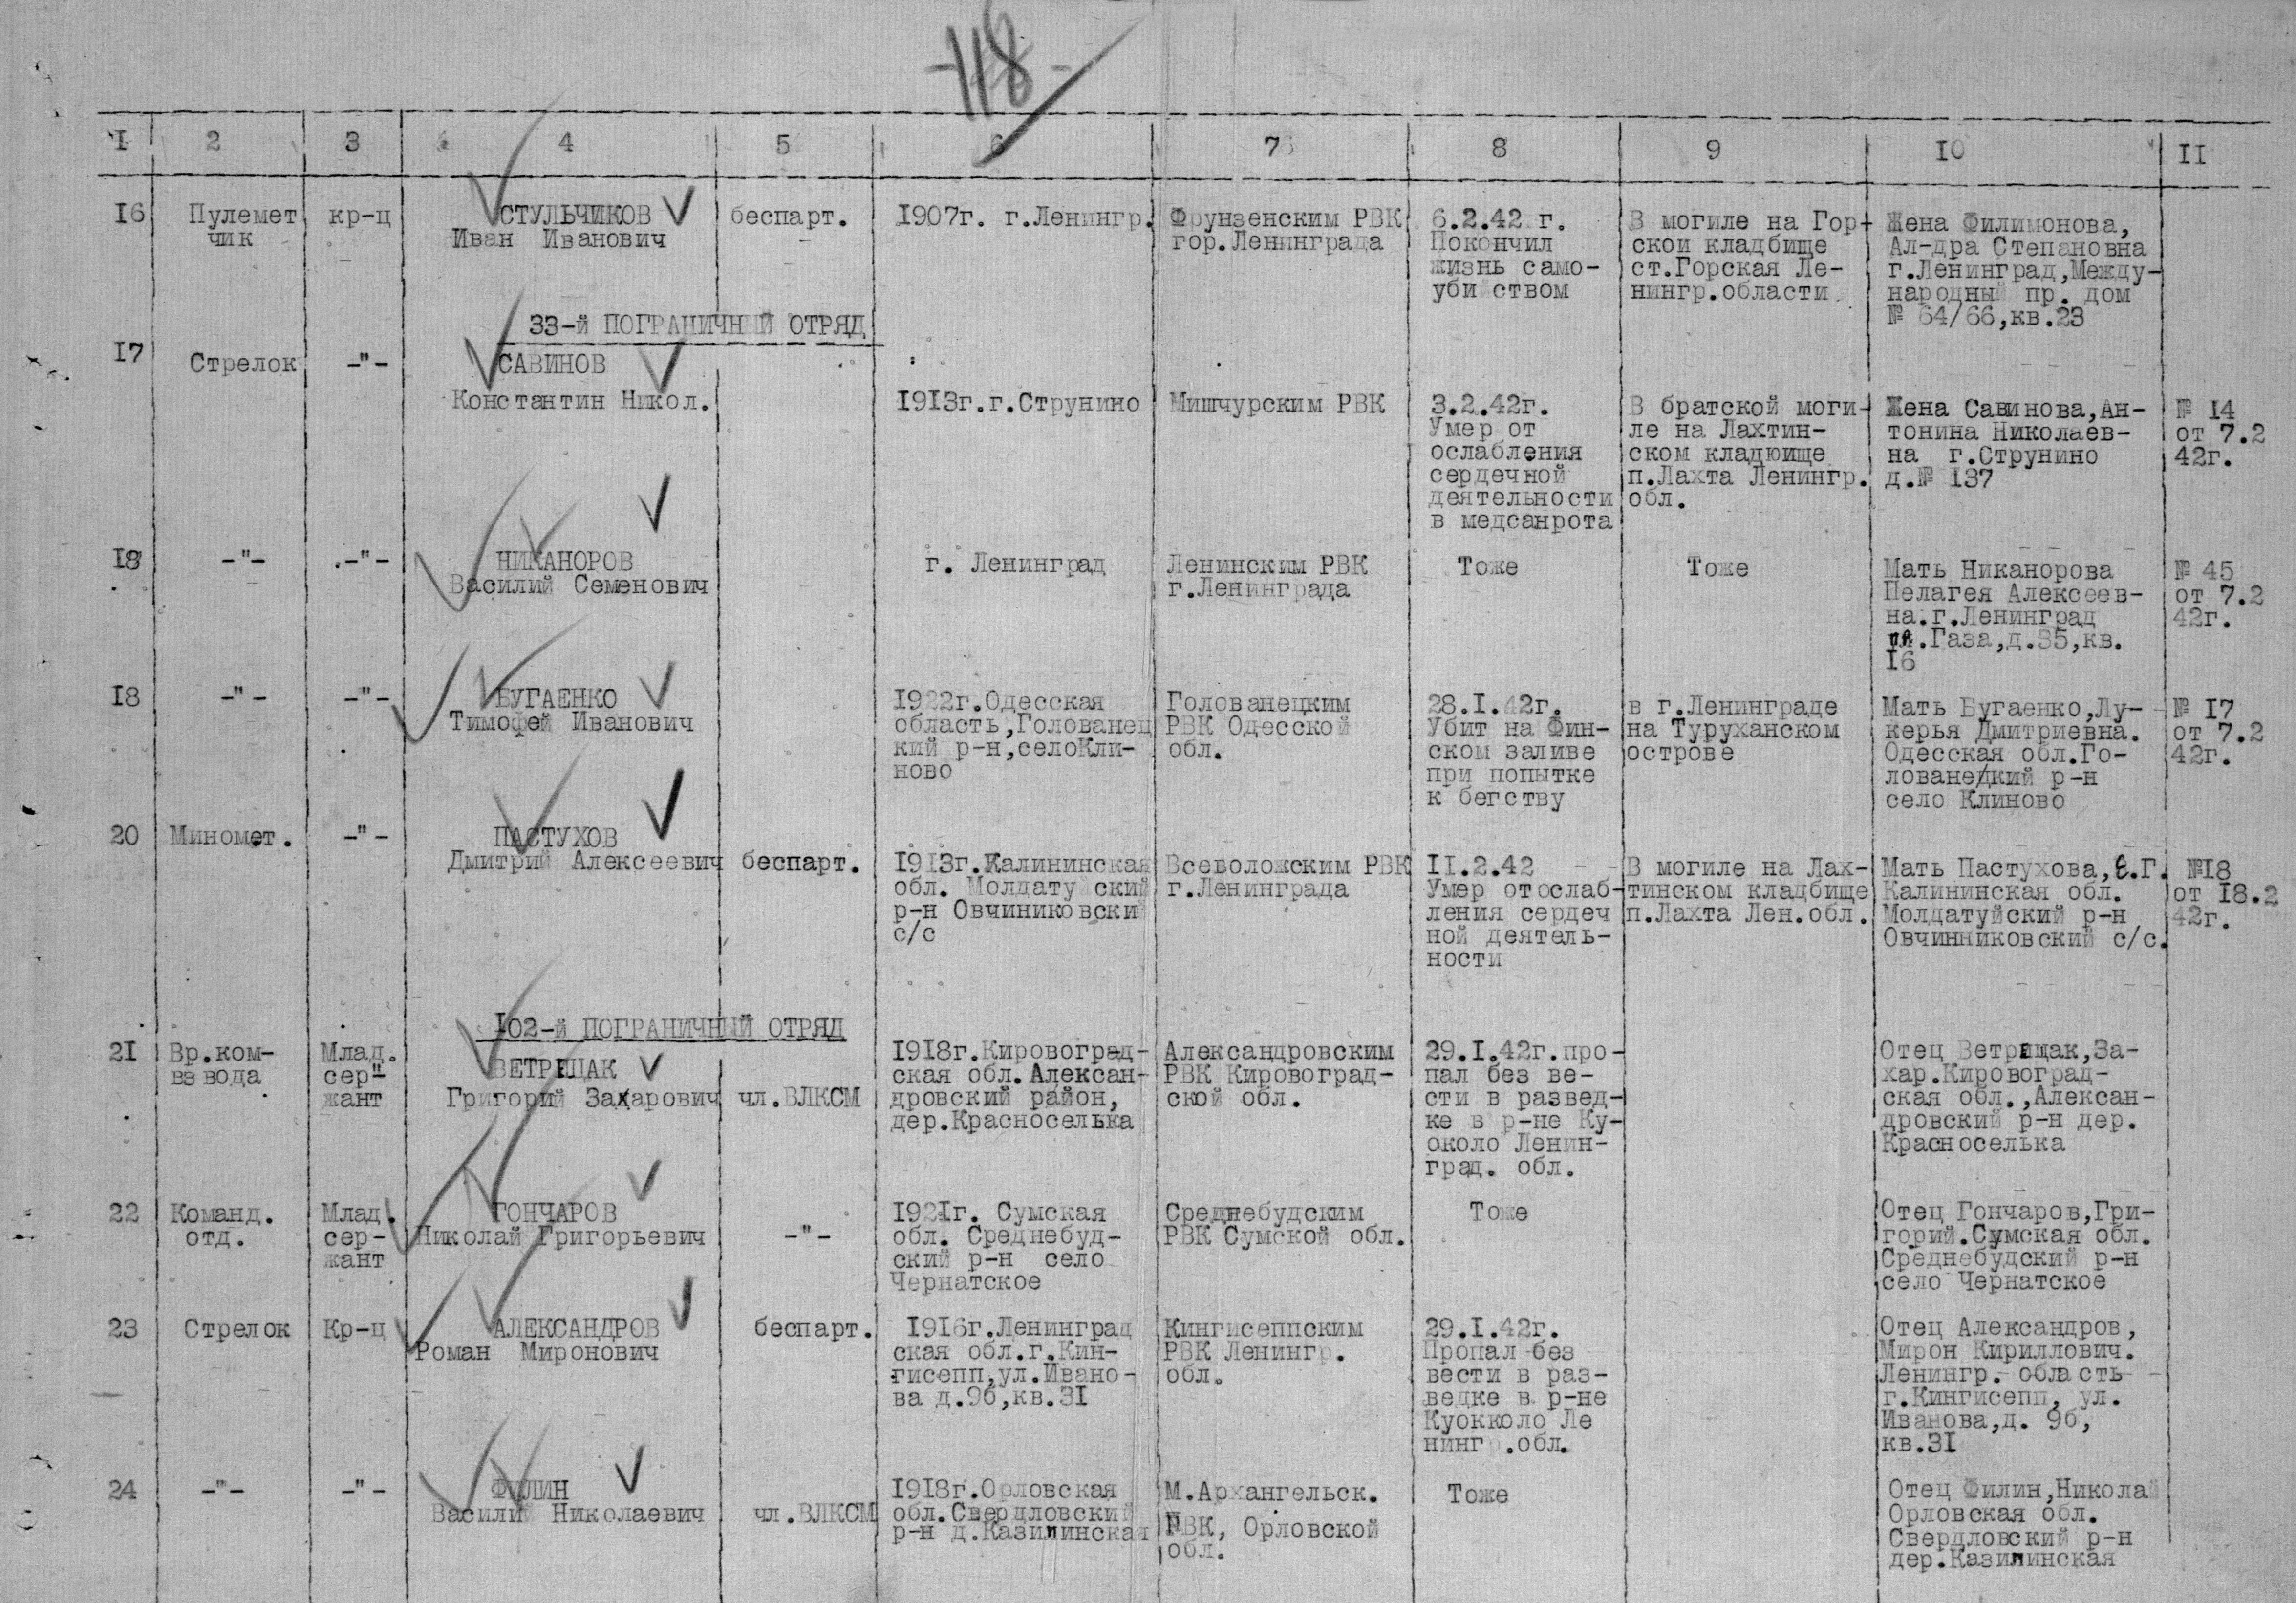 -118-
1 2 3 4 5 6 7 8 9 10 11
16
Пулемет
чик
кр-ц
СТУЛЬЧИКОВ
Иван Иванович
беспарт.
1907г. г.Ленингр.
Фрунзенским РВК
гор.Ленинграда
6.2.42 г.
Покончил
жизнь само-
убийством
В могиле на Гор-
ской кладбище
ст.Горская Ле-
нингр.области.
Жена Филимонова,
Ал-дра Степановна
г.Ленинград,Между-
народный пр. дом
№ 64/66,кв.23
33-й ПОГРАНИЧНЫЙ ОТРЯД
17
Стрелок
-"-
САВИНОВ
Константин Никол.
1913г.г.Струнино
Мишчурским РВК
3.2.42г.
Умер от
ослабления
сердечной
деятельности
в медсанрота
В братской моги-
ле на Лахтин-
ском кладюище
п.Лахта Ленингр.
обл.
Жена Савинова,Ан-
тонина Николаев-
на г.Струнино
д.№ 137
№ 14
от 7.2
42г.
18
-"-
-"-
НИКАНОРОВ
Василий Семенович
г. Ленинград
Ленинским РВК
г.Ленинграда
Тоже
Тоже
Мать Никанорова
Пелагея Алексеев-
на.г.Ленинград
пл.Газа,д.35,кв.
16
№ 45
от 7.2
42г.
18
-"-
-"-
БУГАЕНКО
Тимофей Иванович
1922г.Одесская
область,Голованец
кий р-н,селоКли-
ново
Голованецким
РВК Одесской
обл.
28.1.42г.
Убит на Фин-
ском заливе
при попытке
к бегству
в г.Ленинграде
на Туруханском
острове
Мать Бугаенко,Лу-
керья Дмитриевна.
Одесская обл.Го-
лованецкий р-н
село Клиново
№ 17
от 7.2
42г.
20
Миномет.
-"-
ПАСТУХОВ
Дмитрий Алексеевич
беспарт.
1913г.Калининская
обл. Молдатуйский
р-н Овчиниковский
с/с
Всеволожским РВК
г.Ленинграда
11.2.42
Умер отослаб-
ления сердеч
ной деятель-
ности
В могиле на Лах-
тинском кладбище
п.Лахта Лен.обл.
Мать Пастухова,Е.Г.
Калининская обл.
Молдатуйский р-н
Овчинниковский с/с.
№18
от 18.2
42г.
102-й ПОГРАНИЧНЫЙ ОТРЯД
21
Вр.ком-
взвода
Млад.
сер-
жант
ВЕТРЕЩАК
Григорий Захарович
чл.ВЛКСМ
1918г.Кировоград-
ская обл.Алексан-
дровский район,
дер.Красноселька
Александровским
РВК Кировоград-
ской обл.
29.1.42г.про-
пал без ве-
сти в развед-
ке в р-не Ку-
около Ленин-
град. обл.
Отец Ветрещак,За-
хар.Кировоград-
ская обл.,Алексан-
дровский р-н дер.
Красноселька
22
Команд.
отд.
Млад.
сер-
жант
ГОНЧАРОВ
Николай Григорьевич
-"-
1921г. Сумская
обл. Среднебуд-
ский р-н село
Чернатское
Среднебудским
РВК Сумской обл.
Тоже
Отец Гончаров,Гри-
горий.Сумская обл.
Среднебудский р-н
село Чернатское
23
Стрелок
Кр-ц
АЛЕКСАНДРОВ
Роман Миронович
беспарт.
1916г.Ленинград
ская обл.г.Кин-
гисепп,ул.Ивано-
ва д.9б,кв.31
Кингисеппским
РВК Ленингр.
обл.
29.1.42г.
Пропал без
вести в раз-
ведке в р-не
Куокколо Ле
нингр.обл.
Отец Александров,
Мирон Кириллович.
Ленингр. область
г.Кингисепп, ул.
Иванова,д. 9б,
кв.31
24
-"-
-"-
ФИЛИН
Василий Николаевич
чл.ВЛКСМ
1918г.Орловская
обл.Свердловский
р-н д.Казилинская
М.Архангельск.
РВК, Орловской
обл.
Тоже
Отец Филин,Николай
Орловская обл.
Свердловский р-н
дер.Казилинская